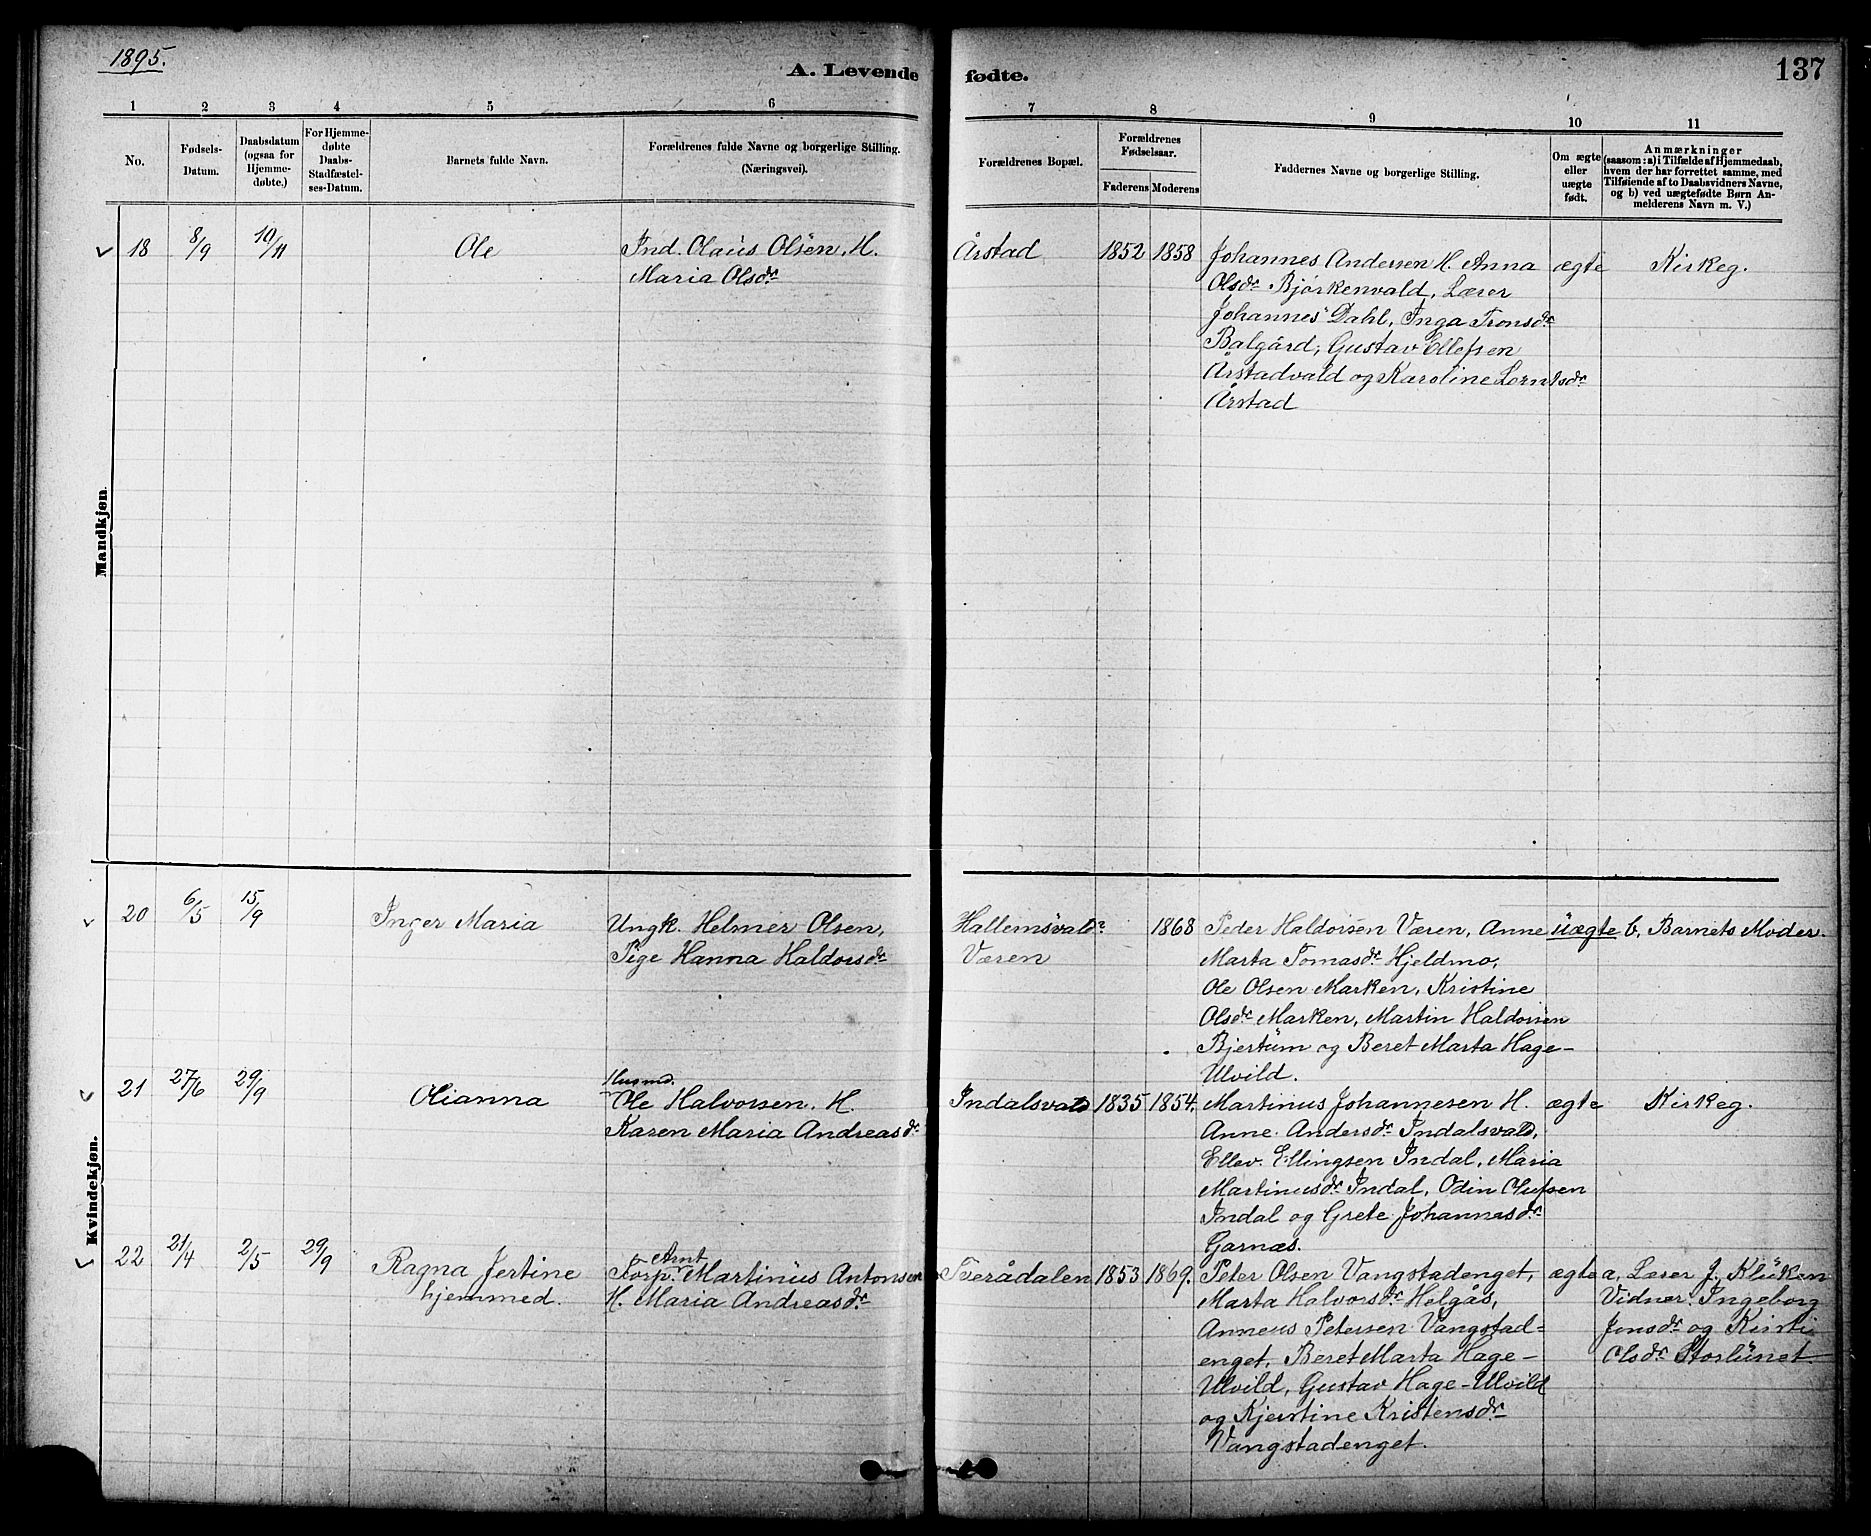 1895.
A. Levende fødte.
137
1 2 3 4 5 6 7 8 9 10 11
No.
Fødsels-
Datum.
Daabsdatum
(ogsaa for
Hjemme-
døbte.)
For Hjemme-
døbte
Daabs-
Stadfæstel-
ses-Datum.
Barnets fulde Navn.
Forældrenes fulde Navne og borgerlige Stilling.
(Næringsvei).
Forældrenes Bopæl.
Forældrenes
Fødselsaar.
Faderens Moderens
Faddernes Navne og borgerlige Stilling.
Om ægte
eller
uægte
født.
Anmærkninger
(saasom: a) i Tilfælde af Hjemmedaab,
hvem der har forrettet samme, med
Tilføiende af to Daabsvidners Navne,
og b) ved uægtefødte Børn An-
melderens Navn m. V.)
Mandkjøn.
18 8/9 10/11 Ole
Ind. Olaus Olsen, H.
Maria Olsdr
Årstad 1852 1858
Johannes Andersen H. Anna
Olsdr Bjørkenvald, Lærer
Johannes Dahl, Inga Tronsdr
Balgård, Gustav Ellefsen
Årstadvald og Karoline Lorntsdr
Årstad
ægte Kirkeg.
Kvindekjøn.
20 6/5 15/9 Inger Maria
Ungk. Helmer Olsen,
Pige Hanna Haldorsdr
Hallemsvald?
Væren
1868
Peder Haldorsen Væren, Anne
Marta Tomasdr Hjeldmo,
Ole Olsen Marken, Kristine
Olsdr Marken, Martin Haldorsen
Bjertum og Beret Marta Hage-
Ulvild.
uægte b. Barnets Moder.
21 27/6 29/9 Olianna
Husmd.
Ole Halvorsen, H.
Karen Maria Andreasdr
Indalsvald 1835 1854.
Martinus Johannesen H.
Anne Andersdr Indalsvald,
Ellev. Ellingsen Indal, Maria
Martinusdr Indal, Odin Olufsen
Indal og Grete Johannasdr
Garnæs.
ægte Kirkeg.
22 21/4 2/5 29/9 Ragna Jertine
hjemmed.
Arnt
Forp. Martinus Antonsen
H. Maria Andreasdr
Tverådalen 1853 1869.
Peter Olsen Vangstadenget,
Marta Halvorsdr Helgås,
Anneus Petersen Vangstad=
enget, Beret Marta Hage-
Ulvild, Gustav Hage-Ulvild
og Kjerstine Kristensdr
Vangstadenget.
ægte a. Lærer J. Klüken
Vidner: Ingeborg
Jonsdr og Kirsti
Olsdr Storlunet.